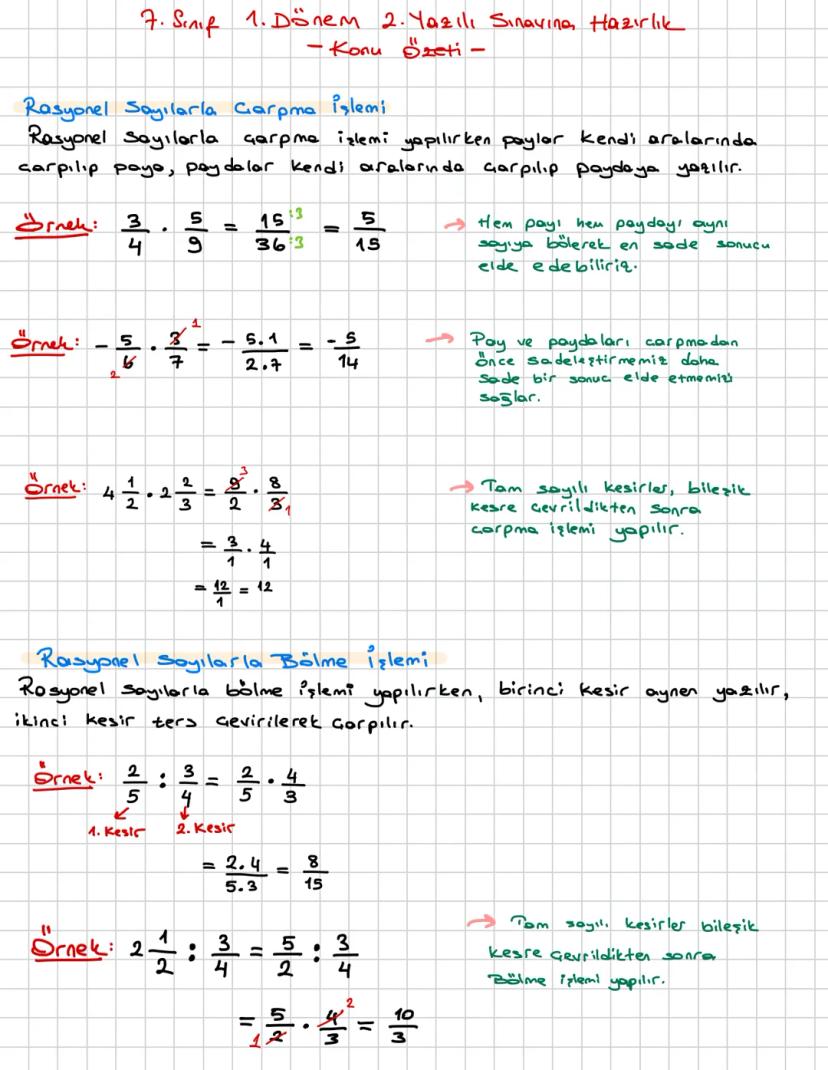 7. Sınıf 1. Dönem 2. Yazılı Sınavına Hazırlık
- Konu Özeti -
Rasyonel Sayılarla Çarpma İşlemi
Rasyonel sayılarla çarpma işlemi yapılırken paylar kendi aralarında
çarpılıp paya, paydalar kendi aralarında çarpılıp paydaya yazılır.
Örnek: 3/4 . 5/9 = 15:3/36:3 = 5/15
→ Hem payı hem paydayı aynı
sayıya bölerek en sade sonucu
elde edebiliriz.
Örnek: - 5/6 2 . 3/7 1 = - 5.1/2.7 = -5/14
→ Pay ve paydaları çarpmadan
önce sadeleştirmemiz daha
sade bir sonuç elde etmemizi
sağlar.
Örnek: 4 1/2 . 2 2/3 = 9/2 3 . 8/3 1
= 3/1 . 4/1
= 12/1 = 12
→ Tam sayılı kesirler, bileşik
kesre çevrildikten sonra
çarpma işlemi yapılır.
Rasyonel Sayılarla Bölme İşlemi
Rasyonel sayılarla bölme işlemi yapılırken, birinci kesir aynen yazılır,
ikinci kesir ters çevirilerek çarpılır.
Örnek: 2/5 : 3/4 = 2/5 . 4/3
1. Kesir 2. Kesir
= 2.4/5.3 = 8/15
Örnek: 2 1/2 : 3/4 = 5/2 : 3/4
= 5/2 1 . 4/3 2 = 10/3
→ Tam sayılı kesirler bileşik
kesre çevrildikten sonra
Bölme işlemi yapılır.